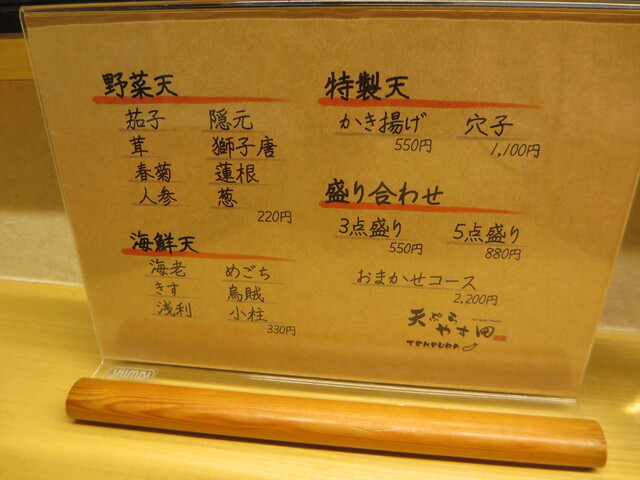 野菜天
茄子 隠元
茸 獅子唐
春菊 蓮根
人参 葱
220円
海鮮天
海老 めごち
きす 烏賊
浅利 小柱
330円
特製天
かき揚げ 穴子
550円 1,100円
盛り合わせ
3点盛り 5点盛り
550円 880円
おまかせコース
2,200円
天ぷら
やす田
TEMPURA